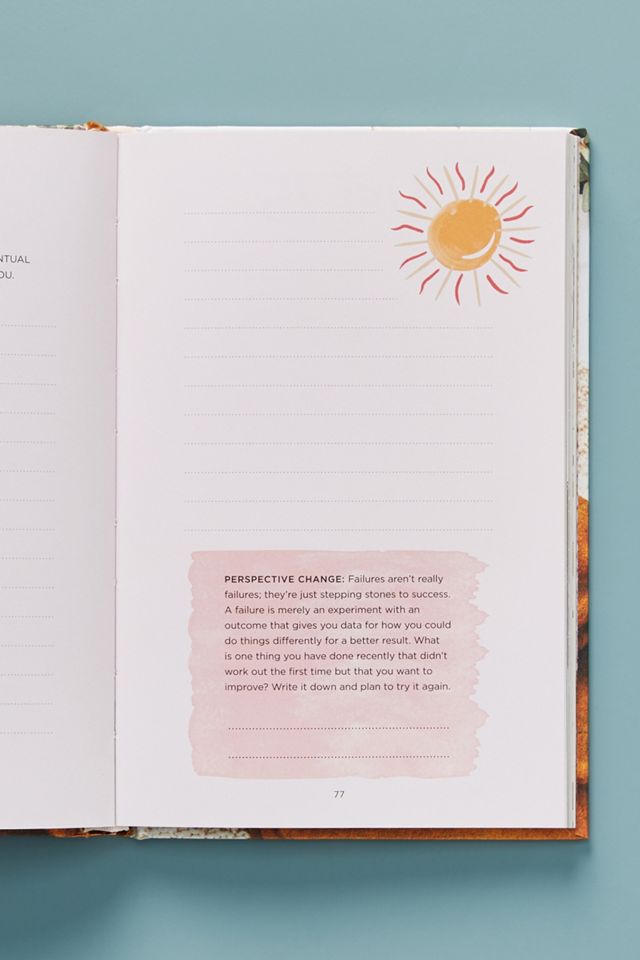 NTUAL
OU.
PERSPECTIVE CHANGE: Failures aren't really
failures; they're just stepping stones to success.
A failure is merely an experiment with an
outcome that gives you data for how you could
do things differently for a better result. What
is one thing you have done recently that didn't
work out the first time but that you want to
improve? Write it down and plan to try it again.
77